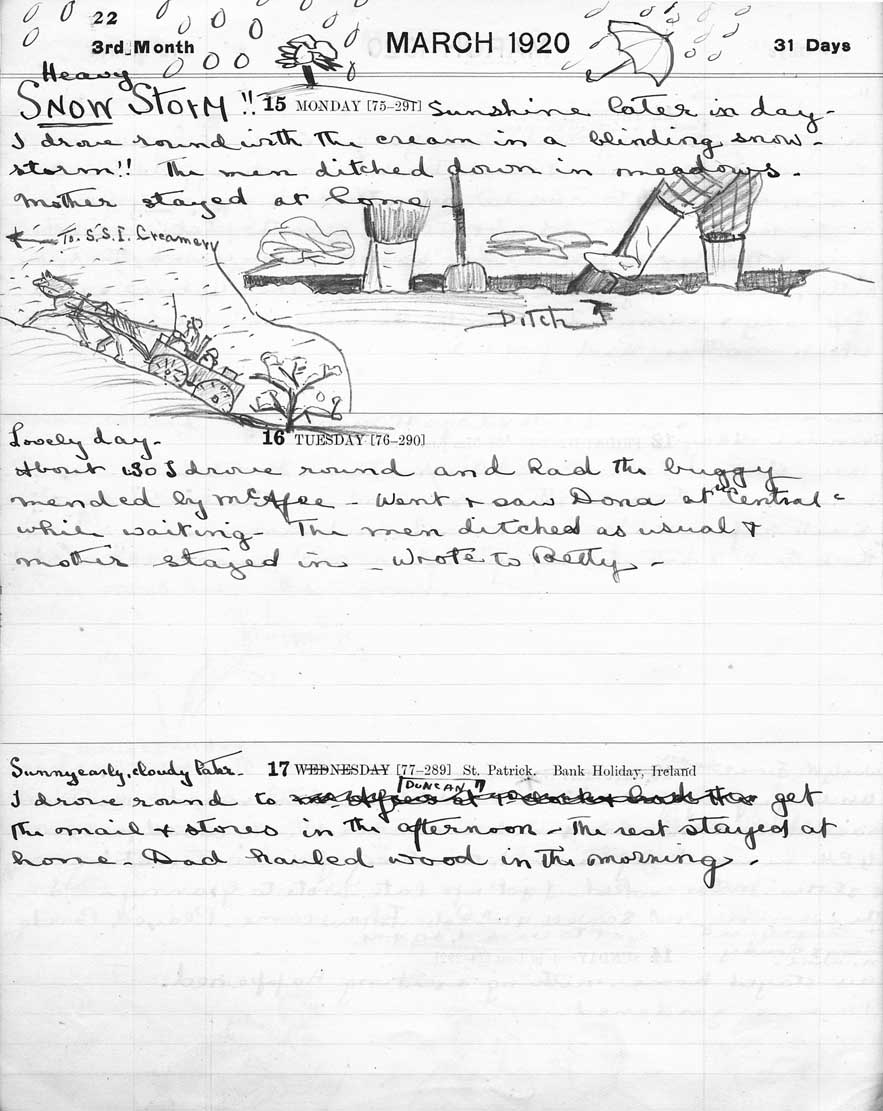 22
3rd Month
MARCH 1920
31 Days
Heavy
SNOW STORM !! 15 MONDAY [75-291] Sunshine later in day -
I drove round with the cream in a blinding snow -
storm!! The men ditched down in meadows -
Mother stayed at home -
To S.S.I. Creamery
Ditch
Lovely day - 16 TUESDAY [76-290]
About 1.30 I drove round and had the buggy
mended by McAfee - Went & saw Dona at "Central"
while waiting - The men ditched as usual &
mother stayed in - Wrote to Betty -
Sunny early, cloudy later - 17 WEDNESDAY [77-289] St. Patrick. Bank Holiday, Ireland
DUNCAN
I drove round to get
the mail & stores in the afternoon - The rest stayed at
home - Dad hauled wood in the morning -